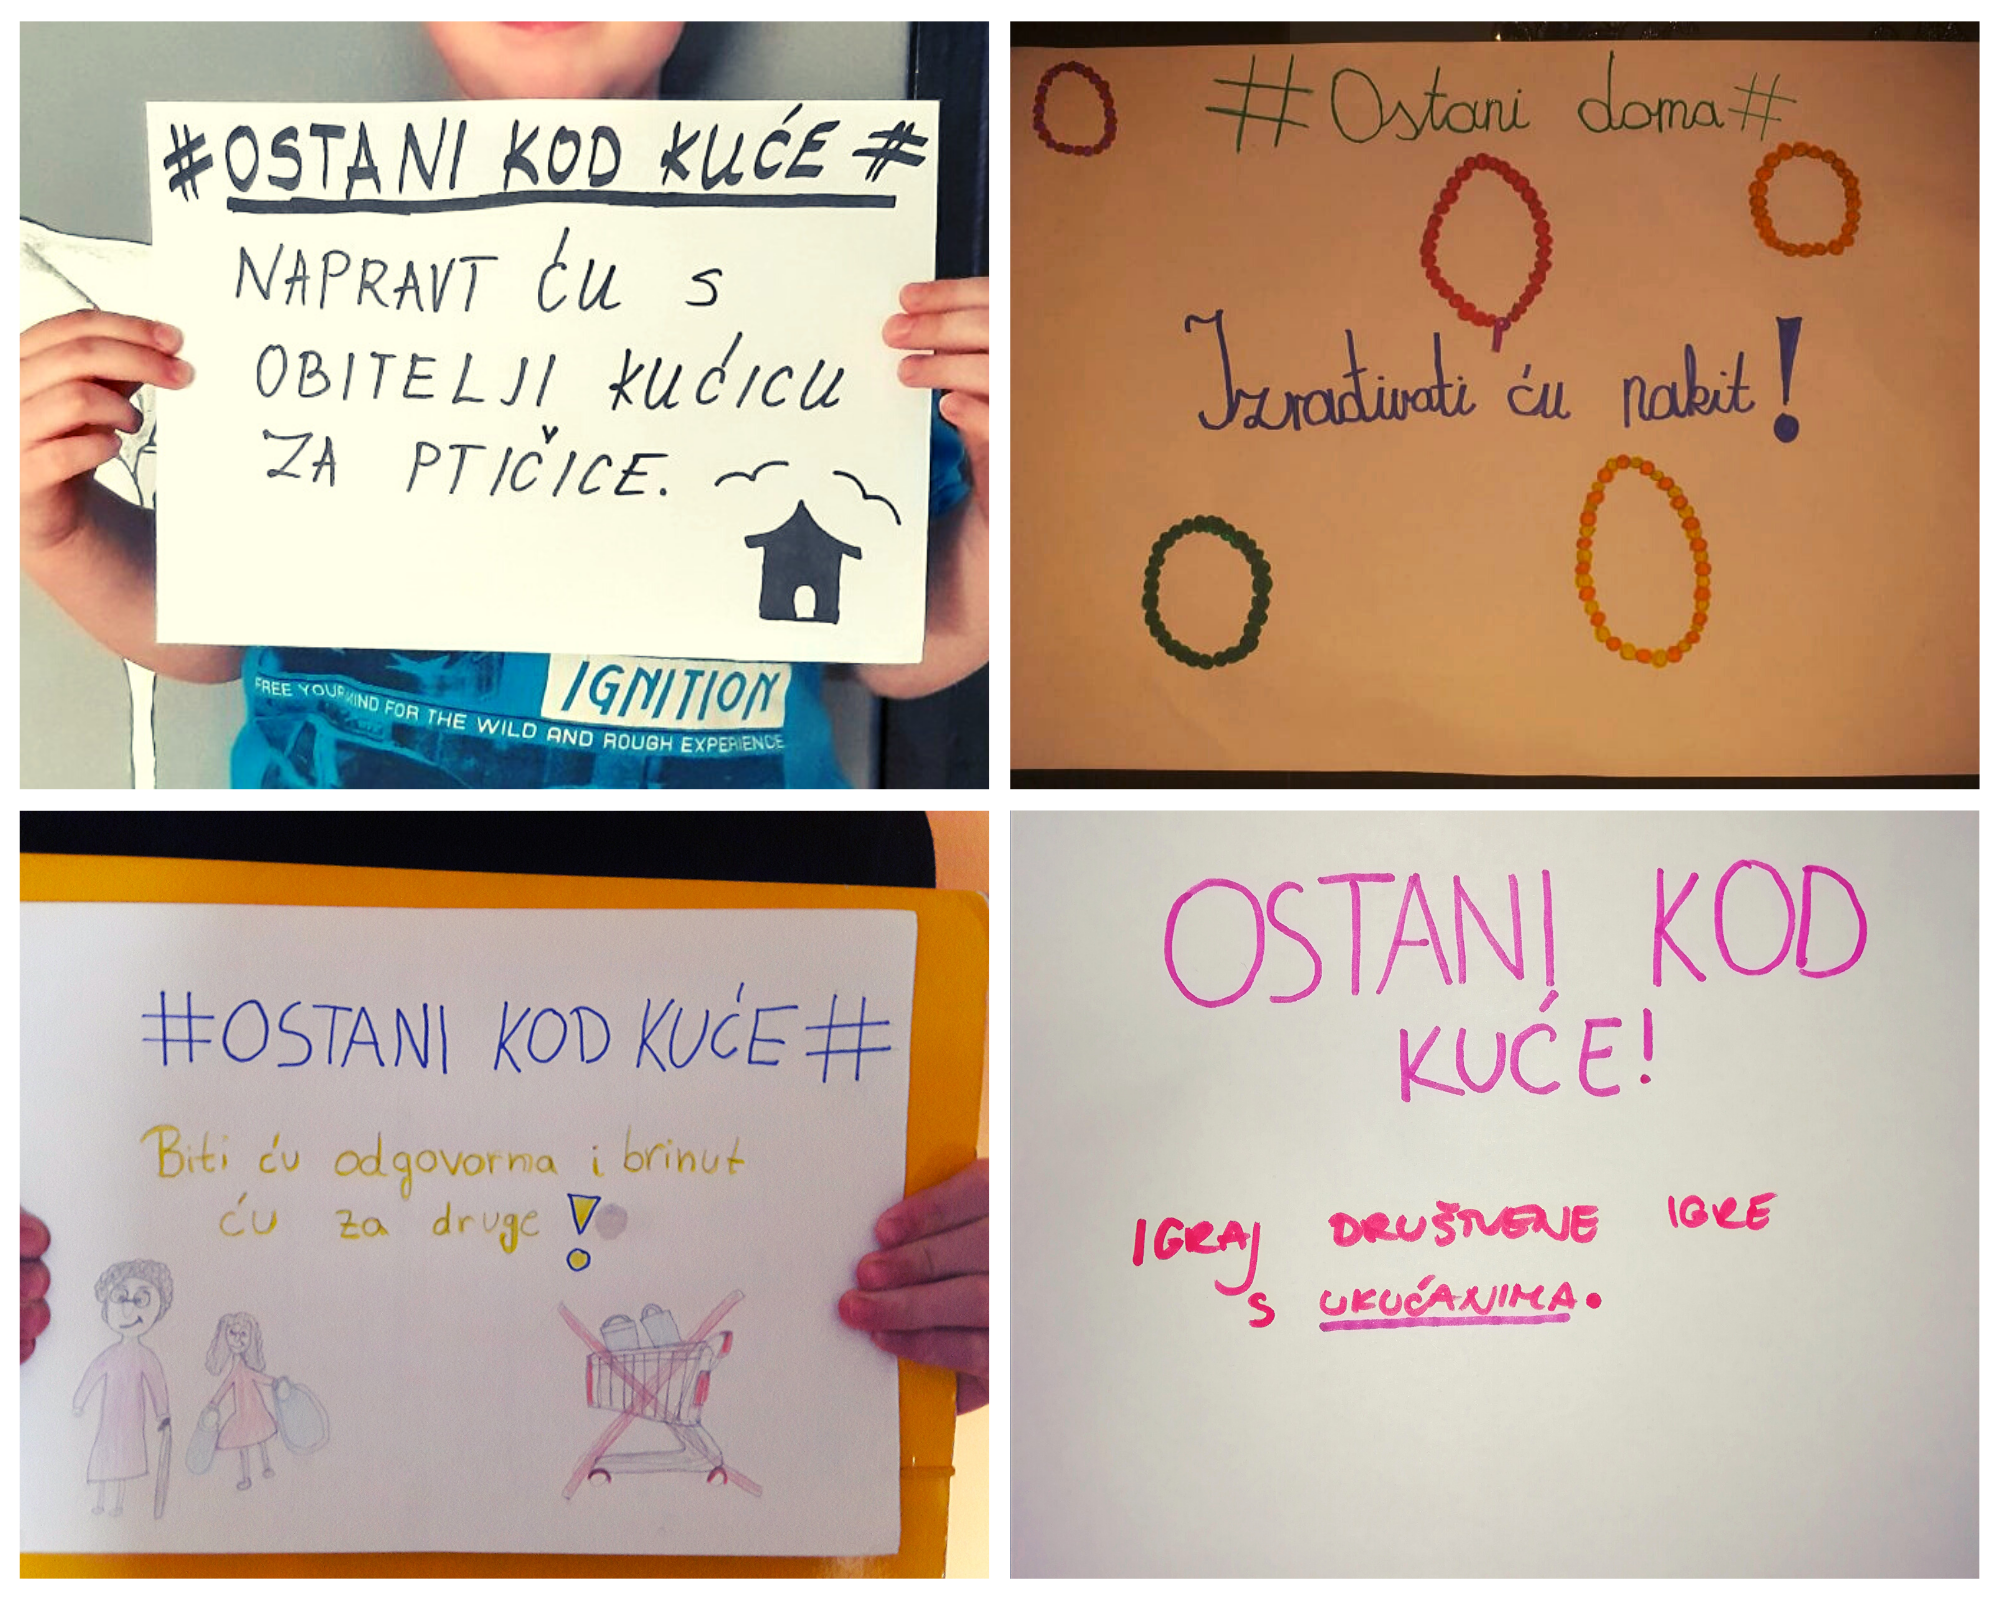 #OSTANI KOD KUĆE#
NAPRAVT ĆU S
OBITELJI KUĆICU
ZA PTIČICE.
IGNITION
FREE YOUR MIND FOR THE WILD AND ROUGH EXPERIENCE
#Ostani doma#
Izrađivati ću nakit!
#OSTANI KOD KUĆE#
Biti ću odgovorna i brinut
ću za druge!
OSTANI KOD
KUĆE!
IGRAJ DRUŠTVENE IGRE
S UKUĆANIMA.